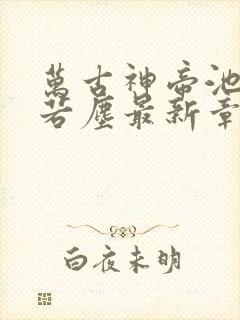 萬古神帝池
若塵最新章
白夜未明